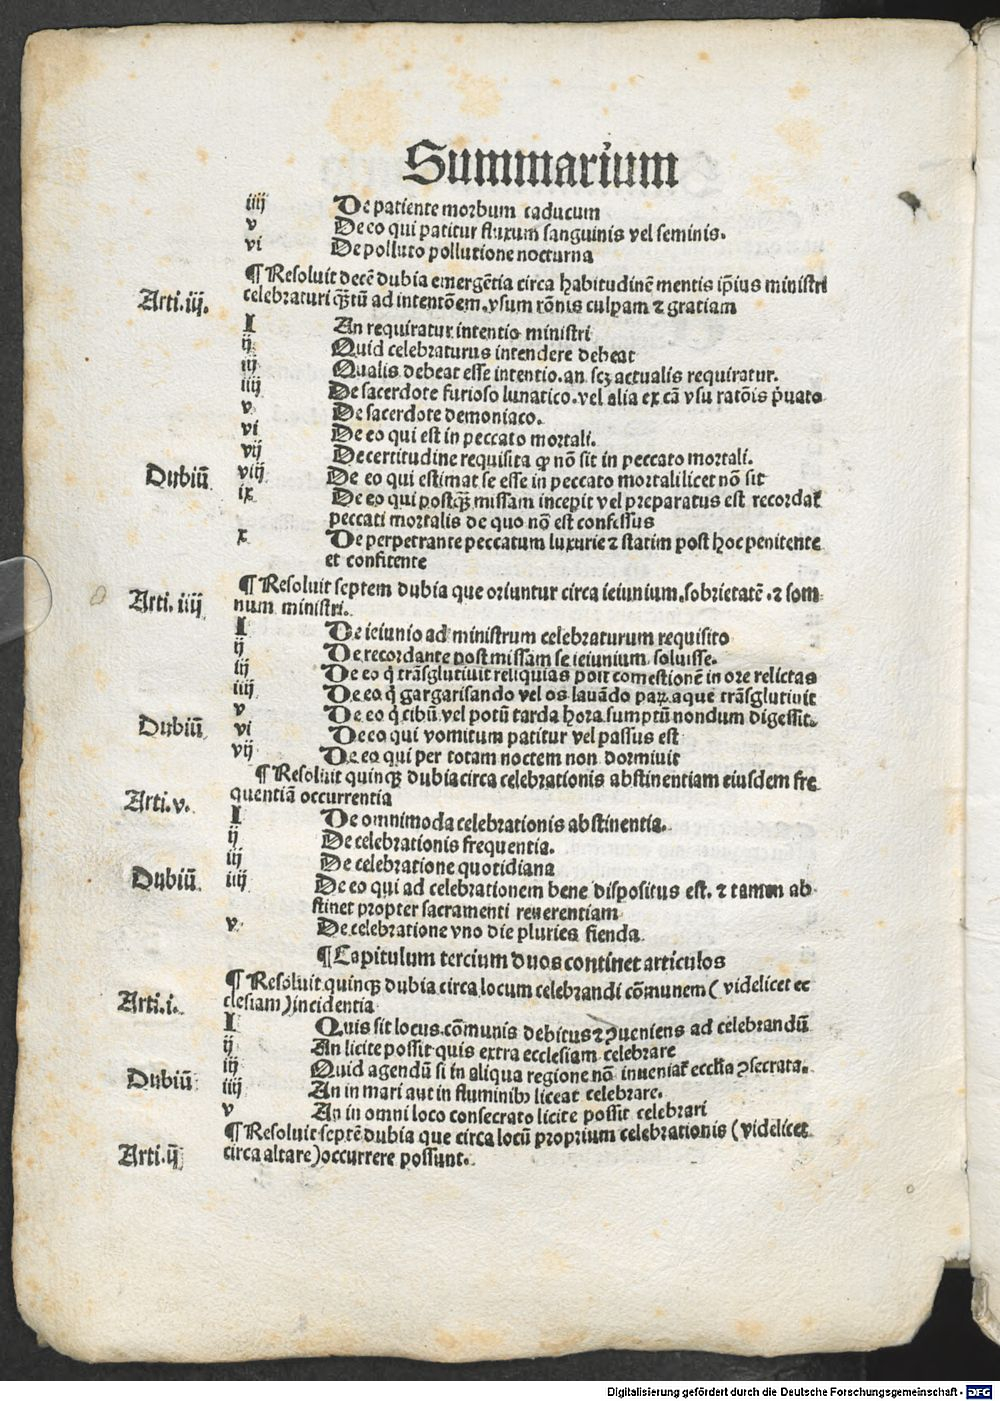 Summarium
iiij De patiente morbum caducum
v De eo qui patitur fluxum sanguinis vel seminis.
vi De polluto pollutione nocturna
¶ Resoluit decē dubia emergētia circa habitudinē mentis ip̄ius ministri
Arti.iij. celebraturi qȝtū ad intentōem.vsum rōnis culpam ⁊ gratiam
I An requiratur intentio ministri
ij Quid celebraturus intendere debeat
iij Qualis debeat esse intentio.an scȝ actualis requiratur.
iiij De sacerdote furioso lunatico.vel alia ex cā vsu ratōis p̄uato
v De sacerdote demoniaco.
vi De eo qui est in peccato mortali.
vij De certitudine requisita ꝙ nō sit in peccato mortali.
Dubiū viij De eo qui estimat se esse in peccato mortali licet nō sit
ix De eo qui postqȝ missam incepit vel preparatus est recordat᷑
peccati mortalis de quo nō est confessus
x De perpetrante peccatum luxurie ⁊ statim post hoc penitente
et confitente
¶ Resoluit septem dubia que oriuntur circa ieiunium.sobrietatē.⁊ som
Arti.iiij num ministri.
I De ieiunio ad ministrum celebraturum requisito
ij De recordante post missam se ieiunium soluisse.
iij De eo q̇ trāsglutiuit reliquias post comestionē in ore relictas
iiij De eo q̇ gargarisando vel os lauādo paꝝ aque trāsglutiuit
v De eo q̇ cibū vel potū tarda hora sumptū nondum digessit.
Dubiū vi De eo qui vomitum patitur vel passus est
vij De eo qui per totam noctem non dormiuit
¶ Resoluit quinqȝ dubia circa celebrationis abstinentiam eiusdem fre
Arti.v. quentiā occurrentia
I De omnimoda celebrationis abstinentia.
ij De celebrationis frequentia.
iij De celebratione quotidiana
Dubiū iiij De eo qui ad celebrationem bene dispositus est. ⁊ tamen ab
stinet propter sacramenti reuerentiam
v De celebratione vno die pluries fienda
¶ Capitulum tercium duos continet articulos
¶ Resoluit quinqȝ dubia circa locum celebrandi cōmunem (videlicet ec
Arti.i. clesiam) incidentia
I Quis sit locus cōmunis debitus ⁊ ꝯueniens ad celebrandū
ij An licite possit quis extra ecclesiam celebrare
iij Quid agendū si in aliqua regione nō inueniat᷑ eccl̄ia ꝯsecrata.
Dubiū iiij An in mari aut in fluminibꝫ liceat celebrare.
v An in omni loco consecrato licite possit celebrari
¶ Resoluit septē dubia que circa locū proprium celebrationis (videlicet
Arti.ij circa altare) occurrere possunt.
Digitalisierung gefördert durch die Deutsche Forschungsgemeinschaft - DFG